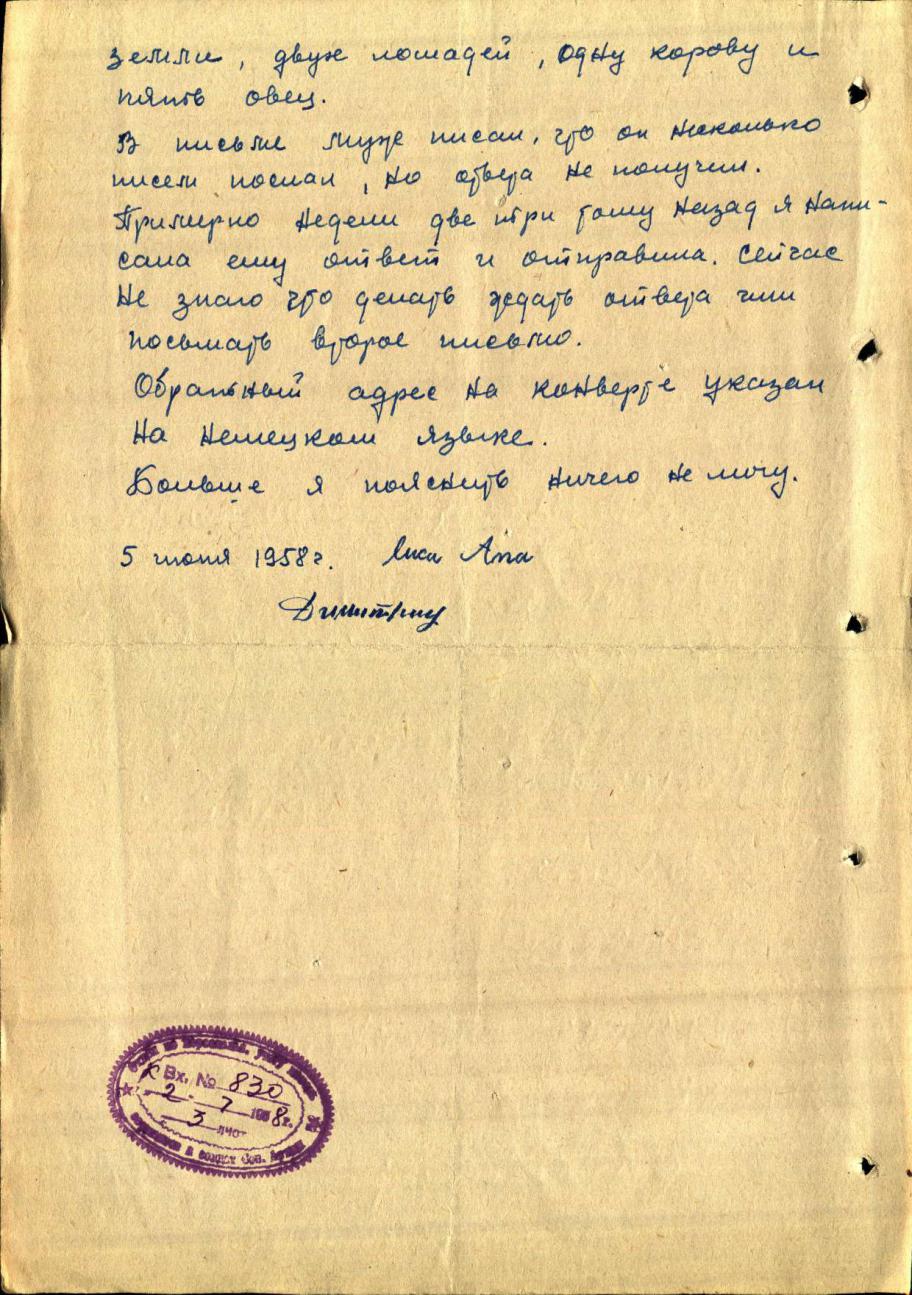 земли, двух лошадей, одну корову и
пять овец.
В письме муж писал, что он несколько
писем послал, но ответа не получил.
Примерно недели две три тому назад я напи-
сала ему ответ и отправила. Сейчас
не знаю что делать ждать ответа или
посылать второе письмо.
Обратный адрес на конверте указан
на немецком языке.
Больше я пояснить ничего не могу.
5 июня 1958 г.
к Вх. № 830
2 - 7 1958 г.
3